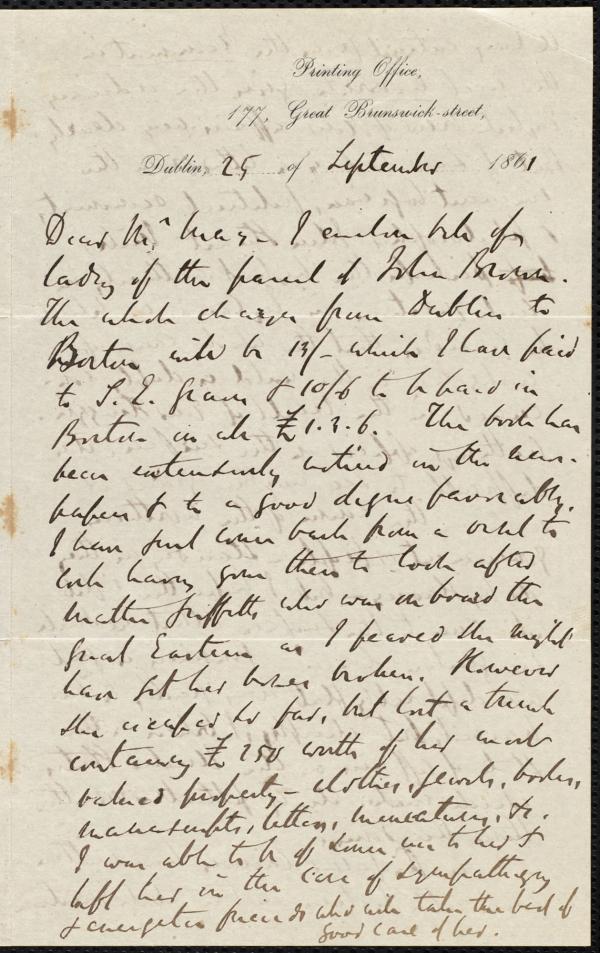 Printing Office,
177, Great Brunswick-street,
Dublin, 25 of September 1861
Dear Mr May - I enclose bill of
lading of the parcel of John Brown.
The whole charges from Dublin to
Boston will be 13/- which I have paid
to & 10/6 to be paid in
Boston in all £1.3.6. The book has
been extensively noticed in the news-
papers & to a good degree favorably.
I have just come back from a visit to
Cork having gone there to look after
Mattie Griffith who was on board the
Great Eastern as I feared she might
have got her bones broken. However
she escaped so far, but lost a trunk
containing £250 worth of her most
valued property - clothes, jewels, books,
manuscripts, letters, miniatures, &c.
I was able to be of some use to her &
left her in the care of sympathizing
& energetic friends who will take the best of
good care of her.